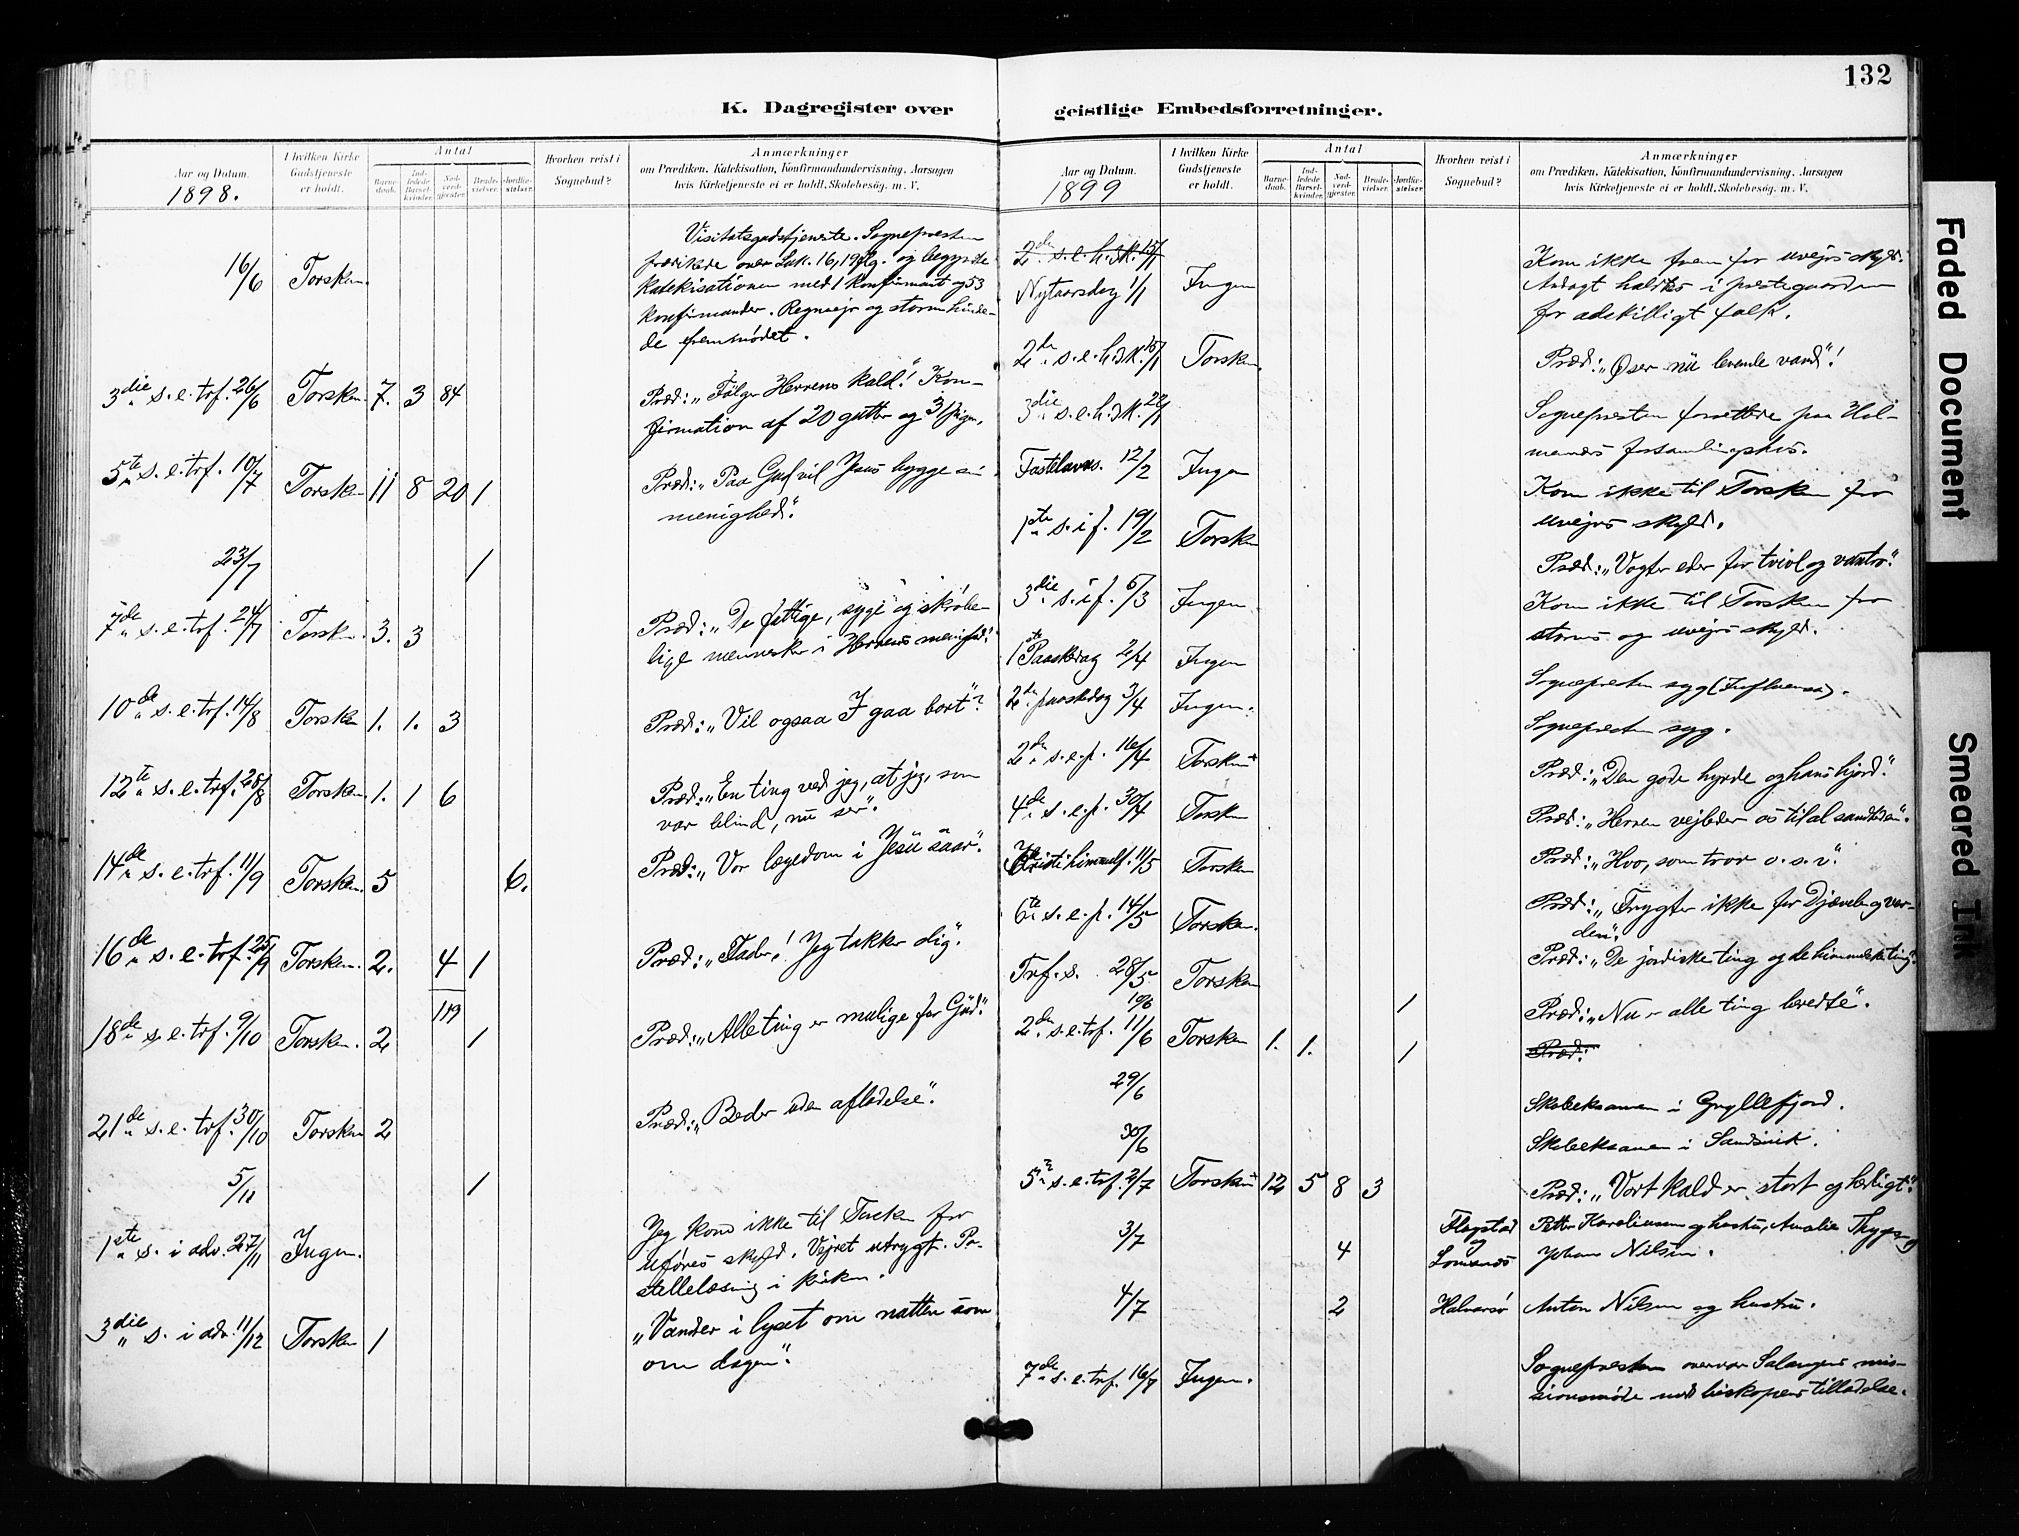 132
K. Dagregister over
geistlige Embedsforretninger.
Aar og Datum.
1898.
I hvilken Kirke Gudstjeneste er holdt.
Antal
Barnedaab.
Indledede Barselkvinder.
Nadverdgjester.
Brudevielser.
Jordfæstelser.
Hvorhen reist i Sognebud?
Anmærkninger
om Prædiken, Katekisation, Konfirmandundervisning, Aarsagen
hvis Kirketjeneste ei er holdt, Skolebesøg. m. V.
Visitatsgudstjeneste. Sognepresten
16/6 Torsken. prædikede over Luk. 16,19 flg. og begyndte
katekisationen med 1 konfirmeret og 53
konfirmander. Regnvejr og storm hindre-
de fremmødet.
3die s. e. trf. 26/6 Torsken. 7. 3 84 Præd: „Følg Herrens kald!" Kon-
firmation af 20 gutter og 31 piger.
5te s. e. trf. 10/7 Torsken 11 8 20 1 Præd: „Paa Gud vil Jesus bygge sin
menighed".
23/7 1
7de s. e. trf. 24/7 Torsken. 3. 3 Præd: „De fattige, syge og skrøbe-
lige mennesker i Herrens menighed".
10de s. e. trf. 14/8 Torsken 1. 1. 3 Præd: „Vil ogsaa I gaa bort"?
12te s. e. trf. 28/8 Torsken. 1. 1 6 Præd: „En ting ved jeg, at jeg, som
var blind, nu ser".
14de s. e. trf. 11/9 Torsken. 5 6. Præd: „Vor lægedom i Jesu saar".
16de s. e. trf. 25/9 Torsken. 2. 4 1 Præd: „Fader! Jeg takker dig".
119
18de s. e. trf. 9/10 Torsken. 2 1 Præd: „Alle ting er mulige for Gud".
21de s. e. trf. 30/10 Torsken 2 Præd: „Beder uden afladelse".
5/11 1
1ste s. i adv. 27/11 Ingen. Jeg kom ikke til Torsken for
uføres skyld. Vejret utrygt. Po-
stillelæsning i kirken.
3die s. i adv. 11/12 Torsken 1 „Vandrer i lyset om natten som
om dagen".
Aar og Datum.
1899
I hvilken Kirke Gudstjeneste er holdt.
Antal
Barnedaab.
Indledede Barselkvinder.
Nadverdgjester.
Brudevielser.
Jordfæstelser.
Hvorhen reist i Sognebud?
Anmærkninger
om Prædiken, Katekisation, Konfirmandundervisning, Aarsagen
hvis Kirketjeneste ei er holdt, Skolebesøg. m. V.
2den s. e. h. 3 k. 15/1
Nytaarsdag 1/1 Ingen Kom ikke frem for uvejrs skyld.
Andagt holdtes i prestegaarden
for adskilligt folk.
2den s. e. h. 3 k. 15/1 Torsken. Præd: „Øser nu levende vand"!
3die s. e. h. 3 k. 22/1 Sognepresten forrettede paa Hol-
menes forsamlingshus.
Fastelavns. 12/2 Ingen Kom ikke til Torsken for
uvejrs skyld.
1ste s. i f. 19/2 Torsken Præd: „Vogter eder for tvivl og vantro".
3die s. i f. 5/3 Ingen. Kom ikke til Torsken for
storms og uvejrs skyld.
1ste Paaskedag 2/4 Ingen Sognepresten syg (Influensa).
2den paaskedag 3/4 Ingen. Sognepresten syg.
2den s. e. p. 16/4 Torsken Præd: „Den gode hyrde og hans hjord".
4de s. e. p. 30/4 Torsken Præd: „Herren vejleder os til al sandheden".
Kristi himmelf. 11/5 Torsken Præd: „Hvo, som tror o. s. v."
6te s. e. p. 14/5 Torsken. Præd: „Frygter ikke for Djævelen og ver-
den".
Trf. s. 28/5 Torsken Præd: „De jordiske ting og de himmelske ting".
10/6 1
2den s. e. trf. 11/6 Torsken 1. 1. 1 Præd: „Nu er alle ting beredte".
Præd:
29/6 Skoleeksamen i Gryllefjord.
30/6 Skoleeksamen i Sandsvik.
5te s. e. trf. 2/7 Torsken 12 5 8 3 Præd: „Vort kald er stort og herligt".
3/7 4 Flagstad og Petter Karoliussen og hustru, Amalie
Johan Nilsen.
4/7 2 Halvarsø Anton Nilsen og hustru.
7de s. e. trf. 16/7 Ingen. Sognepresten overvar Salangens mis-
sionsmøde med biskopens tilladelse.
Faded Document
Smeared Ink